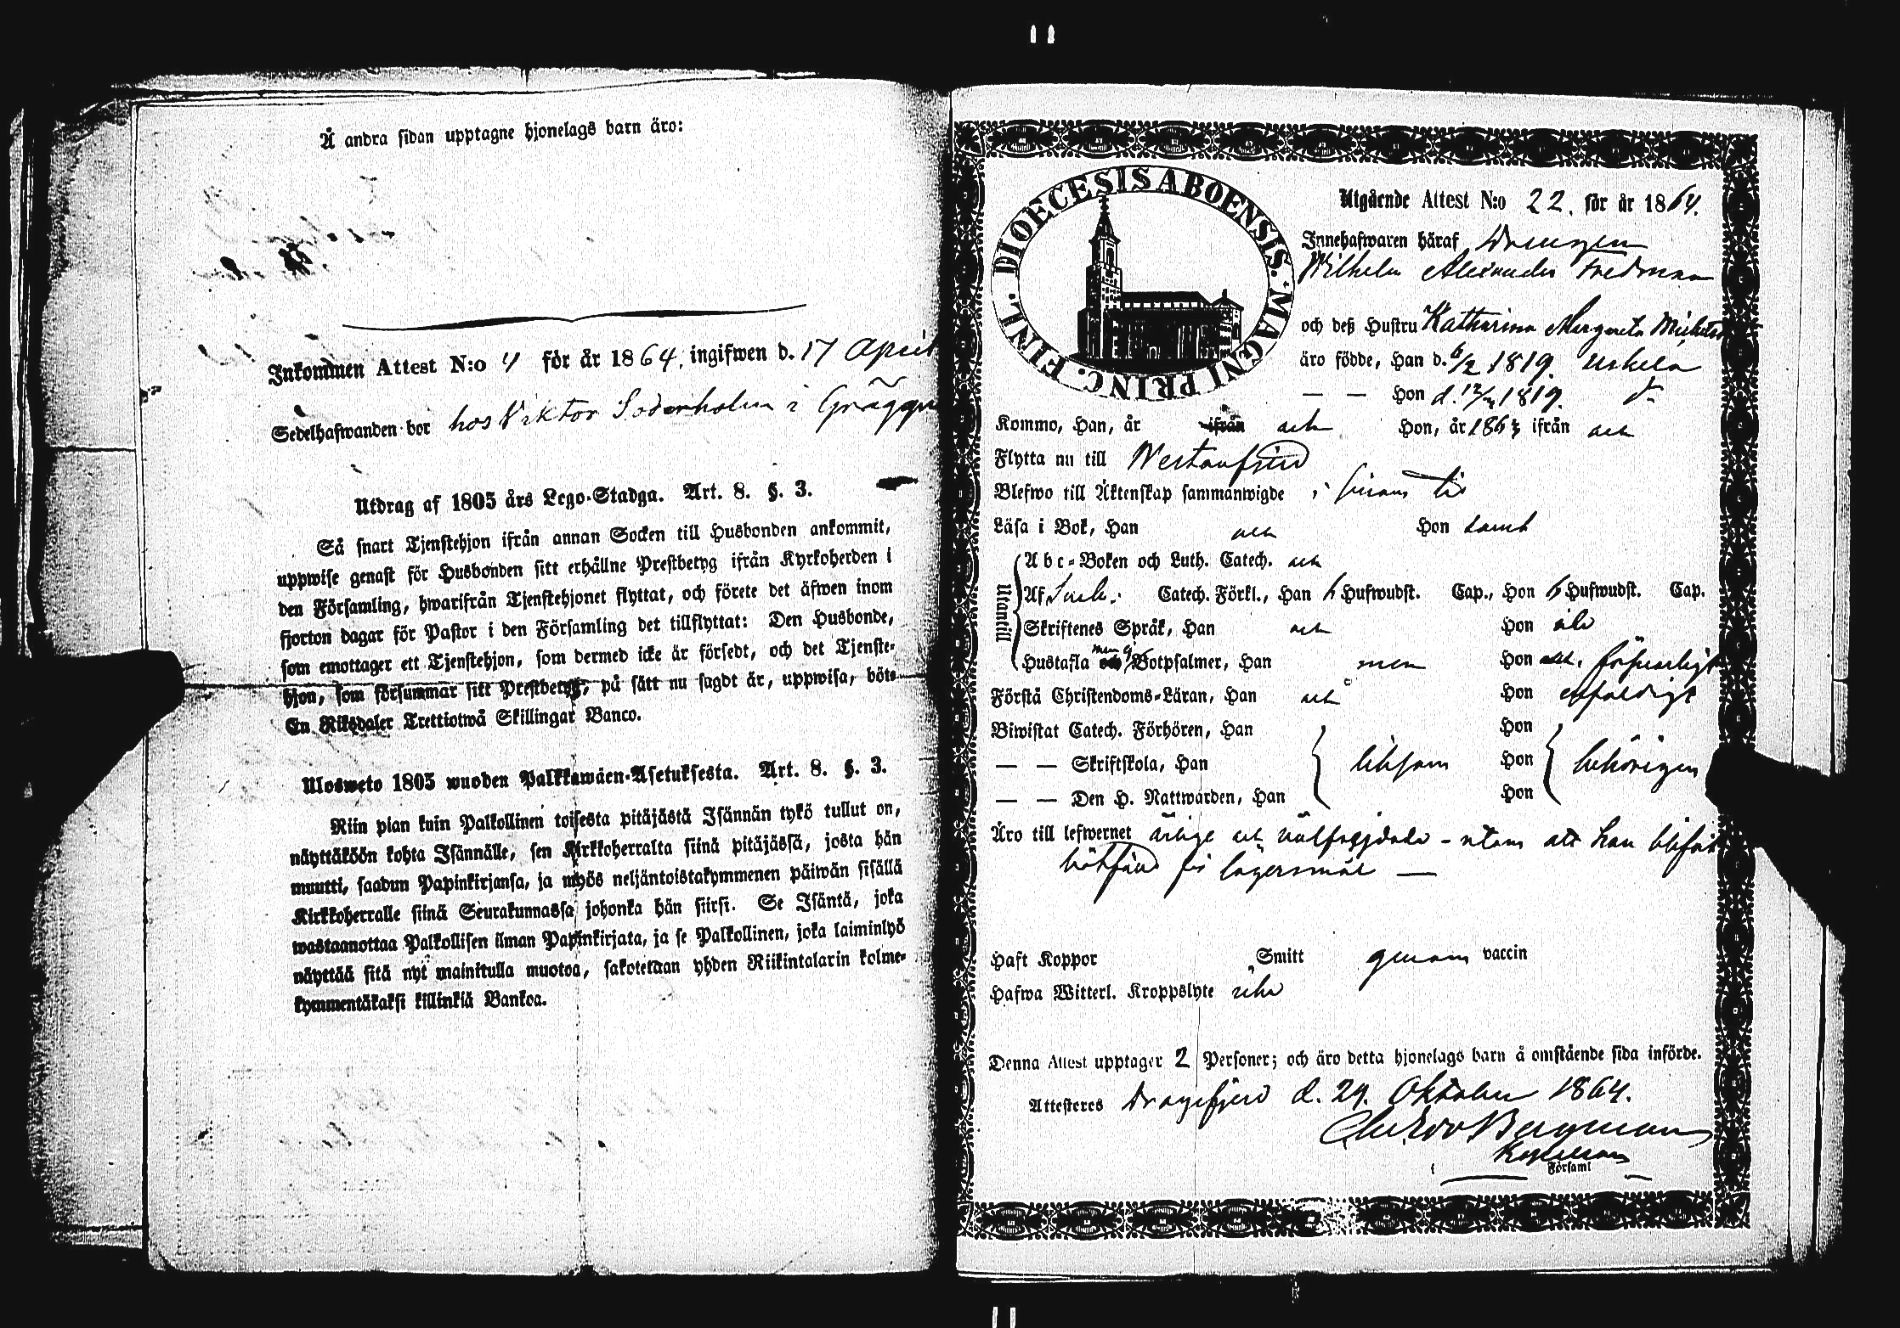 Å andra sidan upptagne hjonelags barn äro:
Inkommen Attest N:o 4 för år 1864. ingifwen d. 17 April
Sedelhafwanden bor hos Viktor Söderholm i
Utdrag af 1805 års Lego-Stadga. Art. 8. §. 3.
Så snart Tjenstehjon ifrån annan Socken till Husbonden ankommit,
uppwise genast för Husbonden sitt erhållne Prestbetyg ifrån Kyrkoherden i
den Församling, hwarifrån Tjenstehjonet flyttat, och förete det äfwen inom
fjorton dagar för Pastor i den Församling det tillflyttat: Den Husbonde,
som emottager ett Tjenstehjon, som dermed icke är försedt, och det Tjenste-
hjon, som försummar sitt Prestbetyg, på sätt nu sagdt är, uppwisa, böte
En Riksdaler Trettiotwå Skillingar Banco.
Ulosweto 1805 wuoden Palkkawäen-Asetuksesta. Art. 8. §. 3.
Niin pian kuin Palkollinen toisesta pitäjästä Isännän tykö tullut on,
näyttäköön kohta Isännälle, sen Kirkkoherralta siinä pitäjässä, josta hän
muutti, saadun Papinkirjansa, ja myös neljäntoistakymmenen päiwän sisällä
Kirkkoherralle siinä Seurakunnassa johonka hän siirsi. Se Isäntä, joka
wastaanottaa Palkollisen ilman Papinkirjata, ja se Palkollinen, joka laiminlyö
näyttää sitä nyt mainitulla muotoa, sakotetaan yhden Riikintalarin kolme-
kymmentäkaksi killinkiä Bankoa.
DIOECESIS ABOENSIS. MAGNI PRINC. FINL.
Utgående Attest N:o 22. för år 1864.
Innehafwaren häraf Drengen
Wilhelm Alexander Fredman
och deß Hustru Katharina Margareta
äro födde, Han d. 6/2 1819. Uskela
— — Hon d. 1819. d:o
Kommo, Han, år ifrån och Hon, år 1863 ifrån
Flytta nu till Westanfjerd
Blefwo till Äktenskap sammanwigde i
Läsa i Bok, Han och Hon samt
Utantill
Abc-Boken och Luth. Catech. och
Af Catech. Förkl., Han 6 Hufwudst. Cap., Hon 6 Hufwudst. Cap.
Skriftenes Språk, Han och Hon
Hustafla men ej Botpsalmer, Han men Hon
Förstå Christendoms-Läran, Han och Hon enfaldigt
Biwistat Catech. Förhören, Han Hon
— — Skriftskola, Han likasom Hon behörigen
— — Den H. Nattwarden, Han Hon
Äro till lefwernet ärlige och wälfrejdade - utom att han blifwit
bötfäld för lägersmål —
Haft Koppor Smitt genom vaccin
Hafwa Witterl. Kroppslyte icke
Denna Attest upptager 2 Personer; och äro detta hjonelags barn å omstående sida införde.
Attesteres Dragsfjerd d. 29. Oktober 1864.
Bergman
Församl